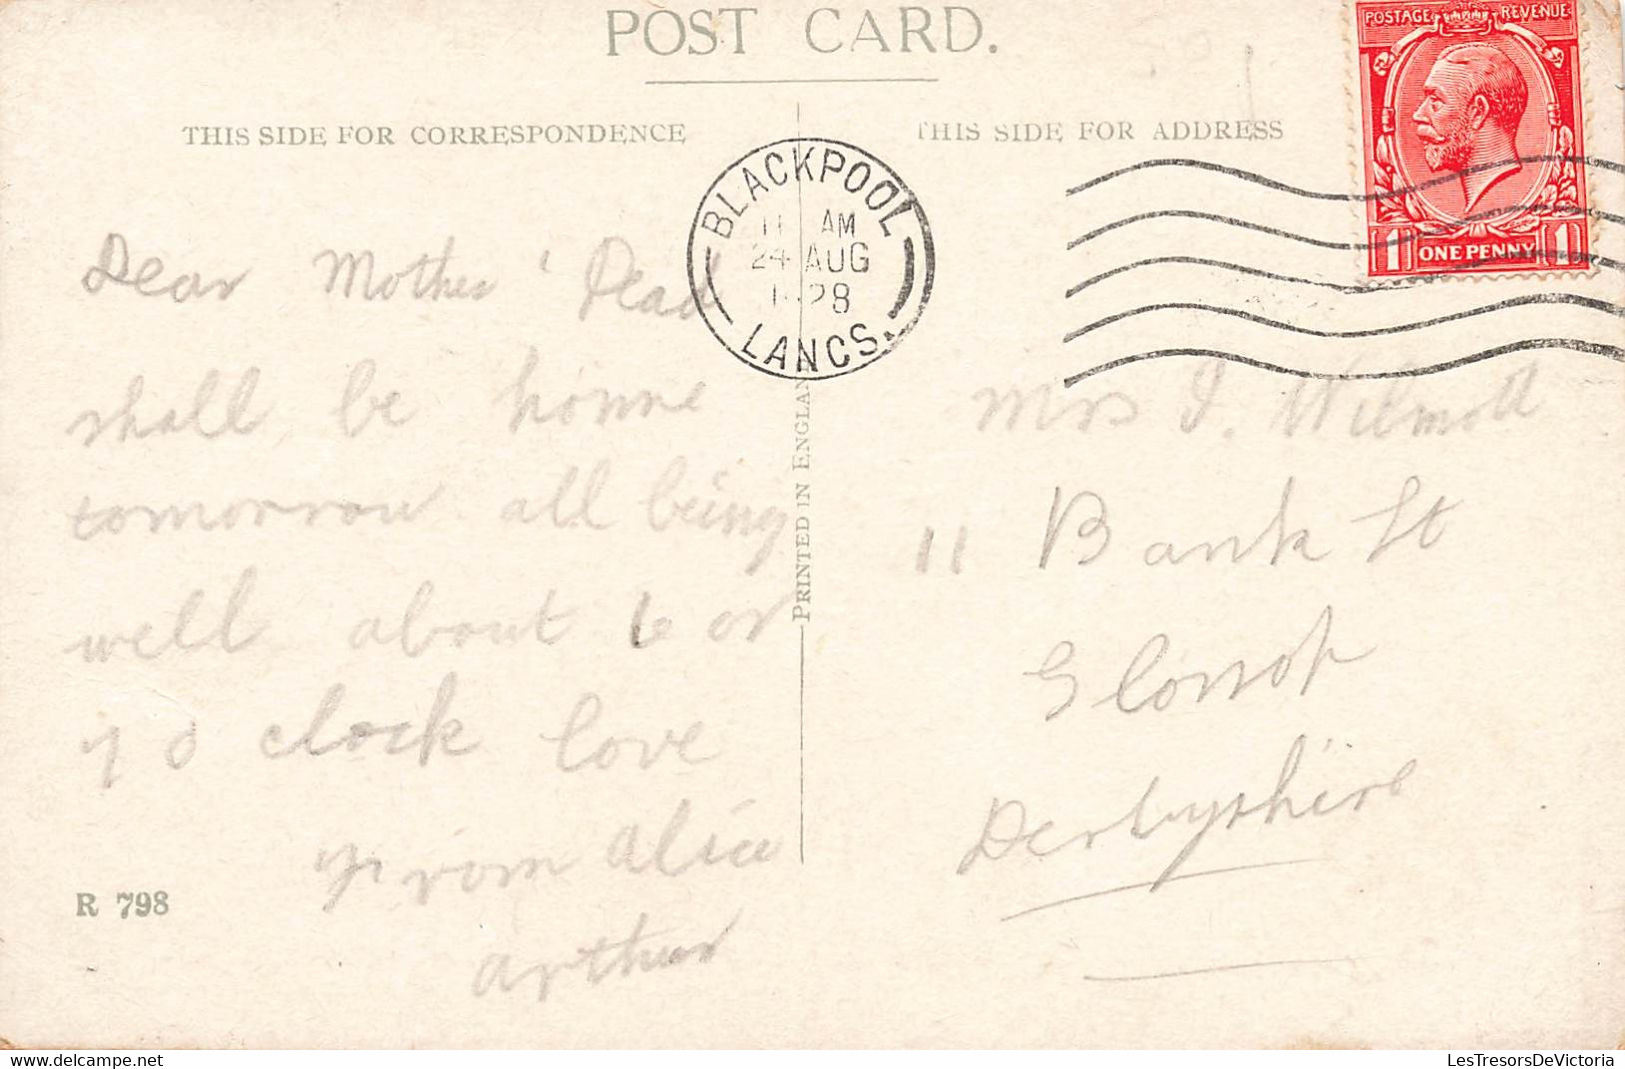 POST CARD.
THIS SIDE FOR CORRESPONDENCE
THIS SIDE FOR ADDRESS
POSTAGE REVENUE
1 ONE PENNY 1
BLACKPOOL
11 AM
24 AUG
1928
LANCS.
PRINTED IN ENGLAND
Dear Mother
shall be home
tomorrow all being
well about 6 or
7 o clock love
from Alice
Arthur
R 798
Mrs J. Wilmott
11 Bank St
Glossop
Derbyshire
LesTresorsDeVictoria
www.delcampe.net